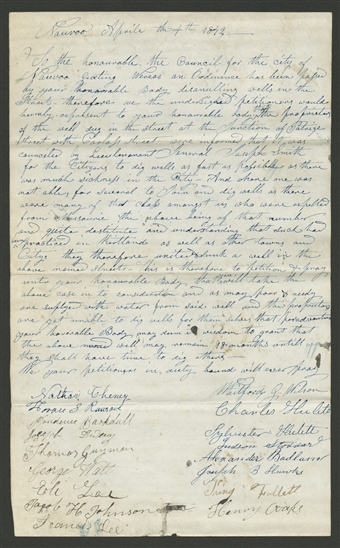 Nauvoo Aprile the 4th 1842
To the honourable the Council for the city of
Nauvoo Greeting Whereas an Ordinance has been passed
by your honourable Body disanulling wells in the
Street therefore we the undersigned petitioners would
humbly represent to your honourable body the proprietors
of the well dug in the street at the Junction of
Street with Street were informed that it was
counseled by Lieuetenant General Joseph Smith
for the Citizens to dig wells as fast as Posseble as there
was much sickness in the City And whare one was
not able for several to Join and dig wells as there
were many of this class amongst us who were expelled
from Missourie the being of that number
and quite destitute and understanding that such had
practised in Kirtland as well as other towns and
Citys they therefore united & sunk a well in the
above named street this is therefore to Petition & pray
unto your honourable Body that will take the
above case in to consideration and as many poor & needy
are suplied with water from said well and the proprietors
are yet unable to dig wells for them selves that
your honorable Body may in wisdom to grant that
the above named well may remain 18 months untill
they shall have time to dig others
We your petitioners in duty bound will ever pray
Nathan Cheney
Horace S
Barkdull
Joseph
Thomas Guyman
George
Cole
Jacob H Johnson
Francis Lee
Whitford G Wilson
Charles Hulett
Sylvester Hulett
Judson Stoddard
Alexander Badlam
Joseph B Hawks
King Follett
Henry